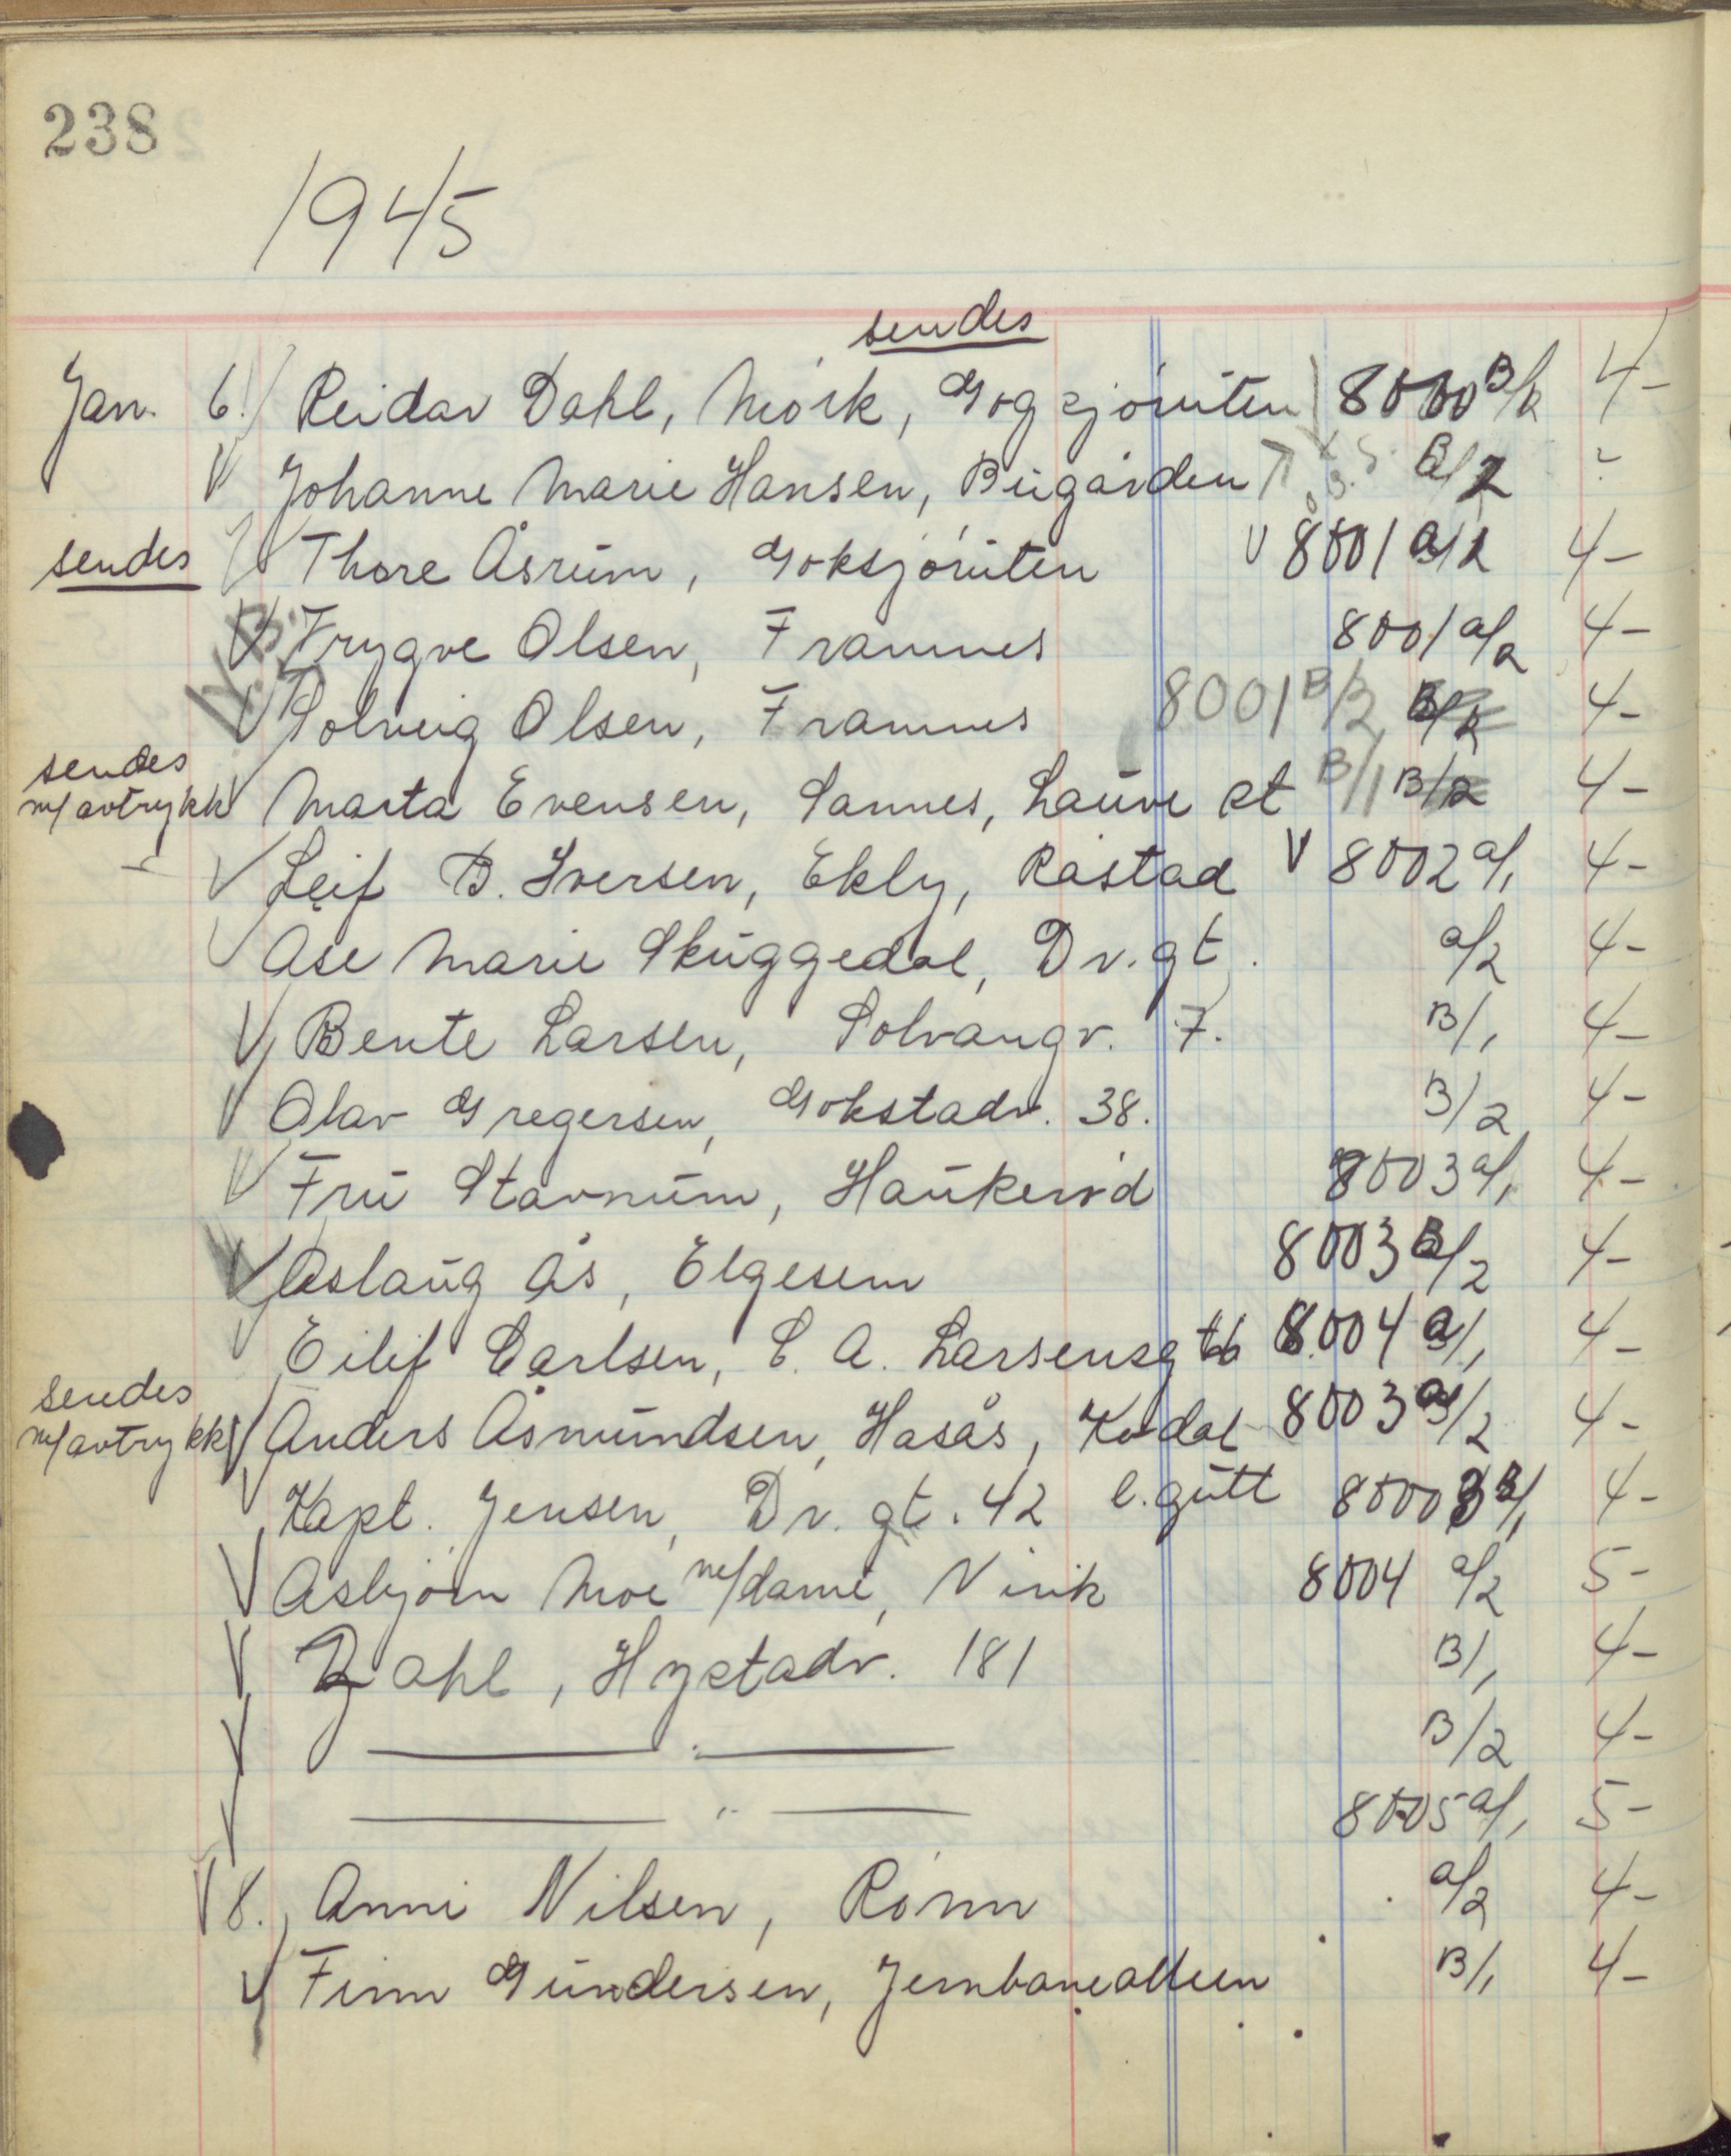 238
1945
sendes
Jan. 6. Reidar Dahl, Mörk, Gogsjöruten 8000 B/2 4-
V Johanne Marie Hansen, Bugården B/2
sendes V Thore Åsrum, Goksjöruten V 8001 a/2 4-
V Trygve Olsen, Framnes 8001 a/2 4-
N.B. V Solveig Olsen, Framnes 8001 B/2 B/2 4-
sendes
m/avtrykk V Marta Evensen, Sannes, Lauve st B/1 B/2 4-
V Leif B. Iversen, Ekly, Råstad V 8002 a/1 4-
V Åse Marie Skuggedal, Dr.gt. a/2 4-
V Bente Larsen, Solvangv. 7. B/1 4-
V Olav Gregersen, Gokstadv. 38. B/2 4-
V Fru Stavnum, Haukeröd 8003 a/1 4-
V Aslaug Ås, Elgesem 8003 B/2 4-
V Eilif Carlsen, L. A. Larsensgt 6 8004 a/1 4-
sendes
m/avtrykk V Anders Åsmundsen, Hasås, Kodal 8003 a/2 4-
V Kapt. Jensen, Dr. gt. 42 l.gutt 8003 B/1 4-
V Asbjörn Moe m/dame, Virik 8004 a/2 5-
V Dahl, Hystadv. 181 B/1 4-
V — " — B/2 4-
V — " — 8005 a/1 5-
V 8. Anni Nilsen, Rönn a/2 4-
V Finn Gundersen, Jernbanealleen B/1 4-